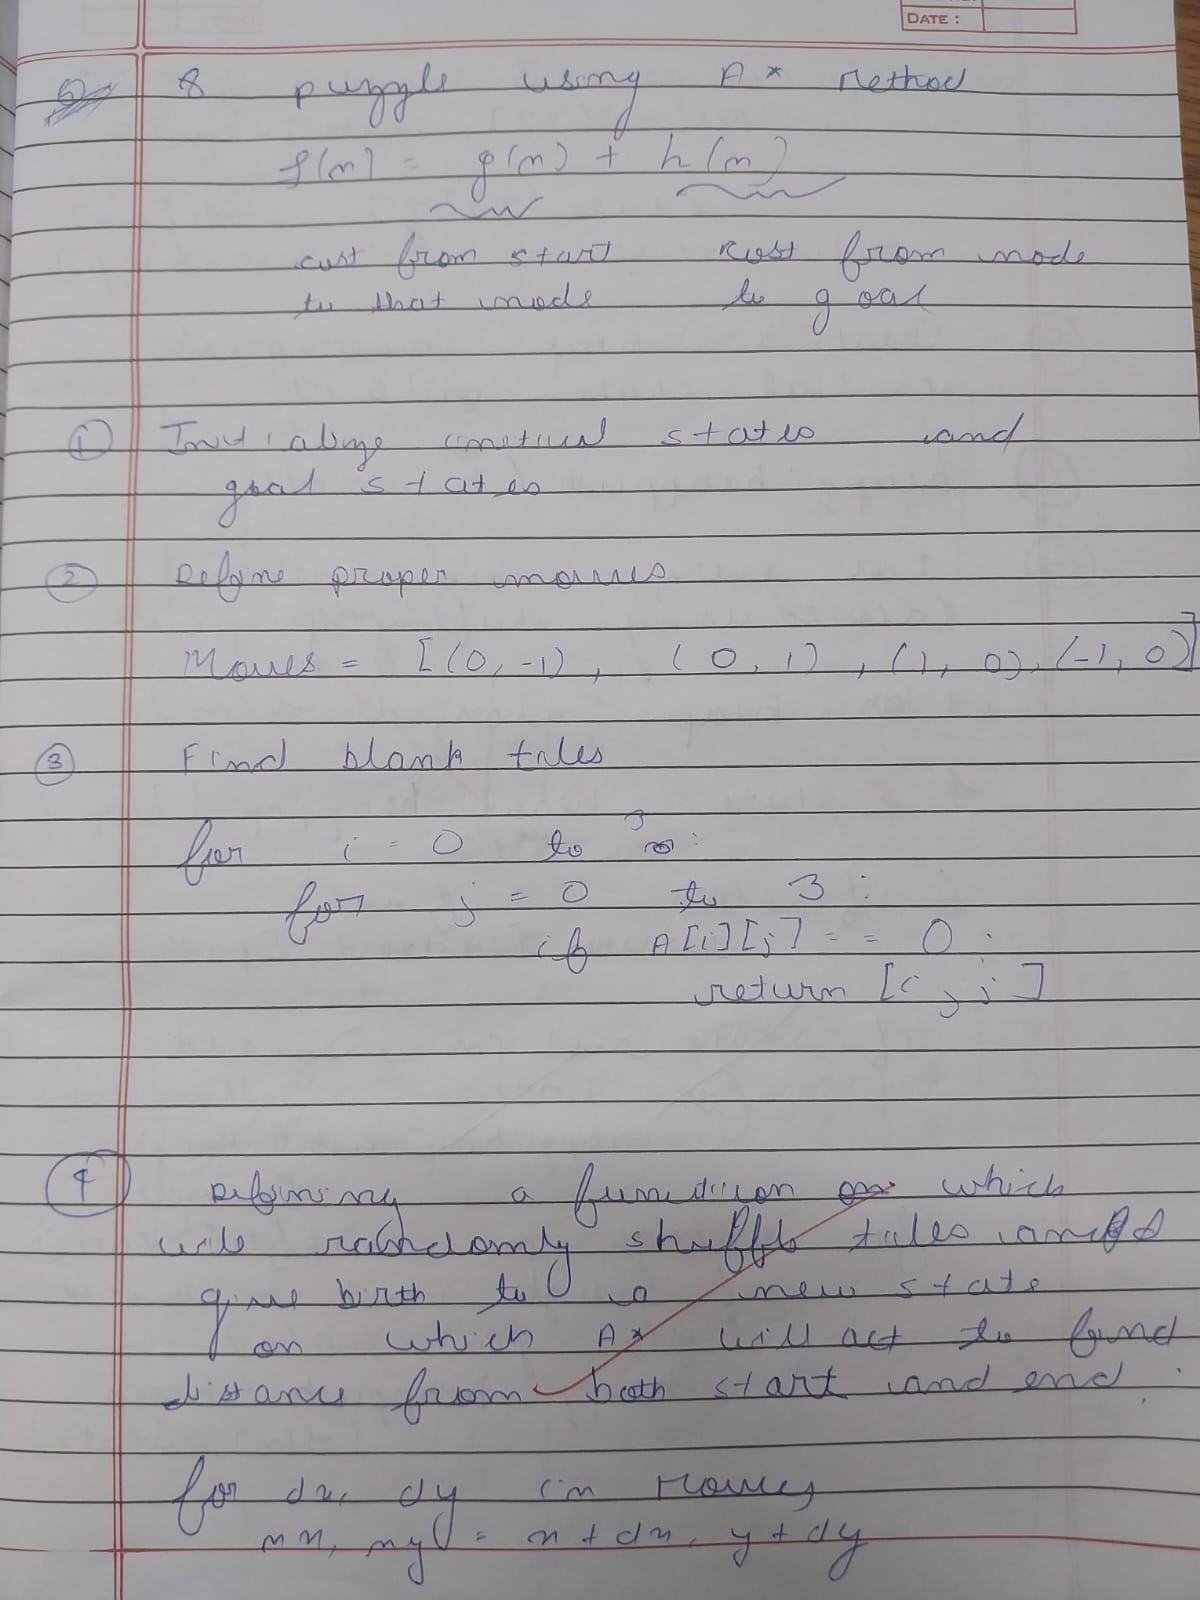 DATE :
8 puzzle using A* Method
f(n) = g(n) + h(n)
cost from start cost from node
to that node to goal
① Initialize initial states and
goal states
② Define proper moves
Moves = [(0,-1), (0,1), (1,0), (-1,0)]
③ Find blank tiles
for i = 0 to 3 :
for j = 0 to 3 :
if A[i][j] == 0 :
return [i, j]
④ Defining a function which
will randomly shuffle tiles and
give birth to a new state
on which A* will act to find
distance from both start and end.
for dx, dy in Moves
nx, ny = x + dx, y + dy